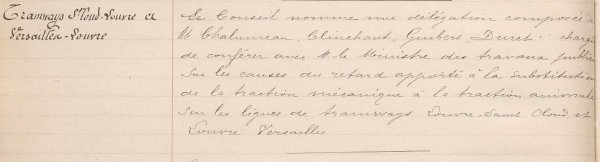 Tramways St Cloud-Louvre et
Versailles-Louvre
Le Conseil nomme une délégation composée de
M. Chalumeau, Clinchant, Guibert, Duret chargée
de conférer avec M. le Ministre des travaux publics
sur les causes du retard apporté à la substitution
de la traction mécanique à la traction animale
sur les lignes de tramways Louvre-Saint Cloud et
Louvre Versailles